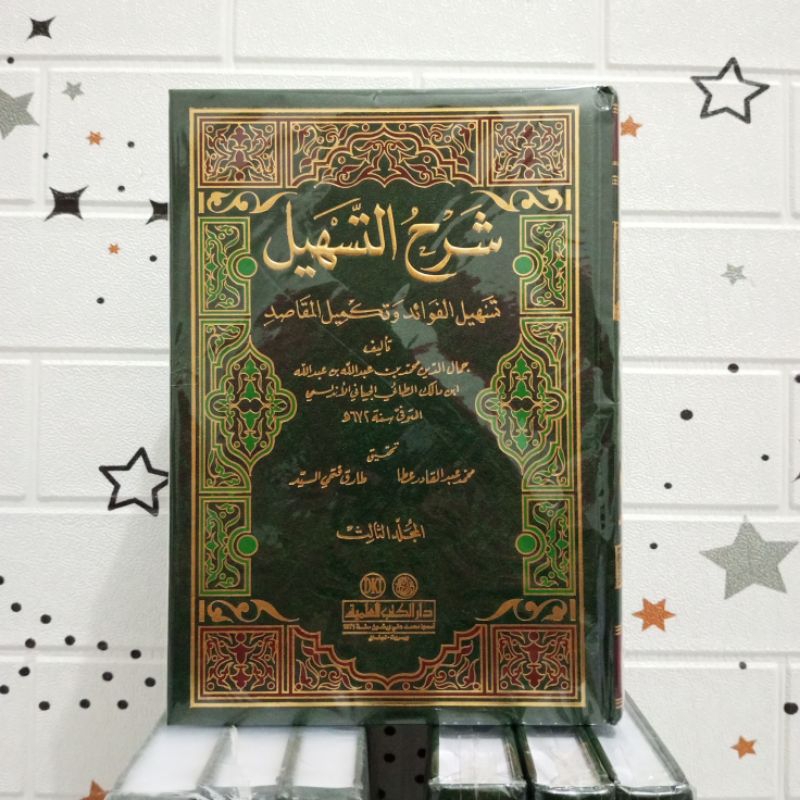 شَرْحُ التَّسْهِيل
تسهيل الفوائد وتكميل المقاصد
تأليف
جمال الدين محمد بن عبد الله بن عبد الله
ابن مالك الطائي الجياني الأندلسي
المتوفى سنة ٦٧٢ هـ
تحقيق
محمد عبد القادر عطا طارق فتحي السيد
المجلد الثالث
DKI
دار الكتب العلمية
أسسها محمد علي بيضون سنة 1971
بيروت - لبنان